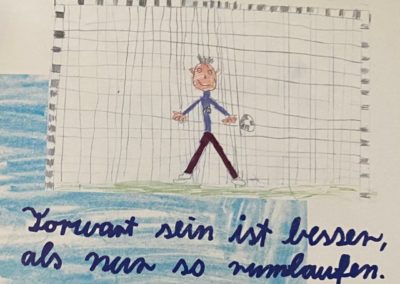 Torwart sein ist besser,
als nur so rumlaufen.